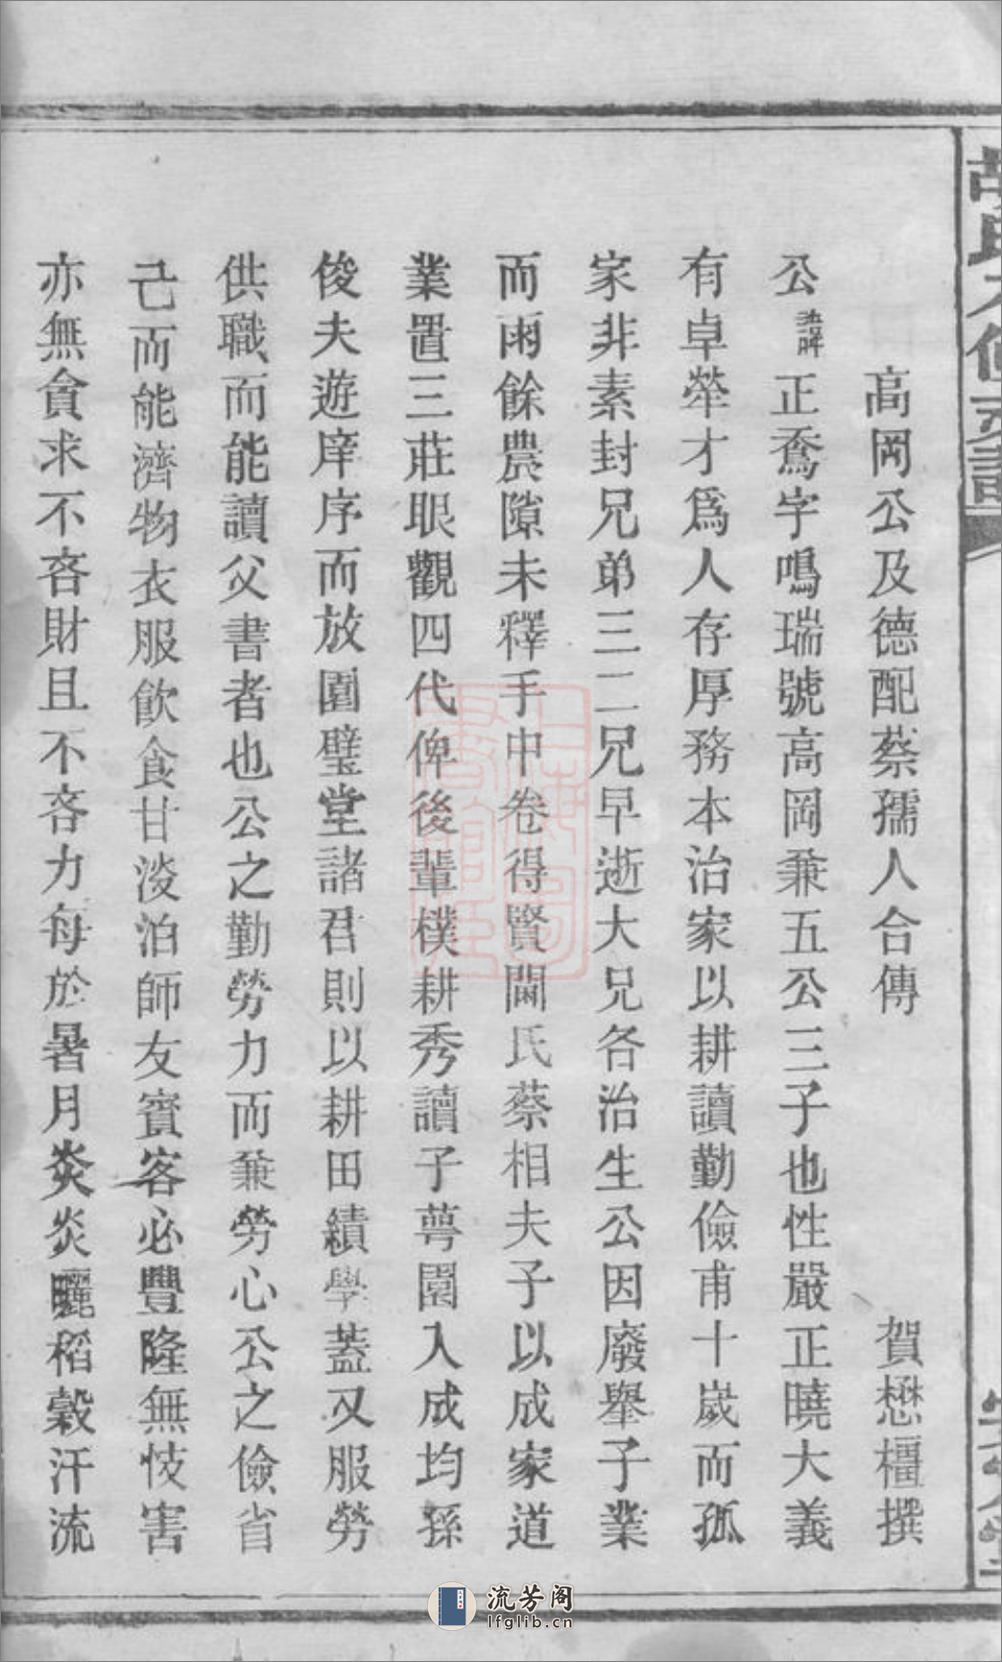 高岡公及德配蔡孺人合傳
賀懋橿撰
公諱正鴌字鳴瑞號高岡兼五公三子也性嚴正曉大義
有卓犖才爲人存厚務本治家以耕讀勤儉甫十歲而孤
家非素封兄弟三二兄早逝大兄各治生公因廢舉子業
而雨餘農隙未釋手中卷得賢閫氏蔡相夫子以成家道
業置三莊眼觀四代俾後輩樸耕秀讀子蕚園入成均孫
俊夫遊庠序而放園璧堂諸君則以耕田績學蓋又服勞
供職而能讀父書者也公之勤勞力而兼勞心公之儉省
己而能濟物衣服飲食甘淡泊師友賓客必豐隆無忮害
亦無貪求不吝財且不吝力每於暑月炎炎曬稻穀汗流
胡氏 修 譜
堂
流芳阁
lfglib.cn